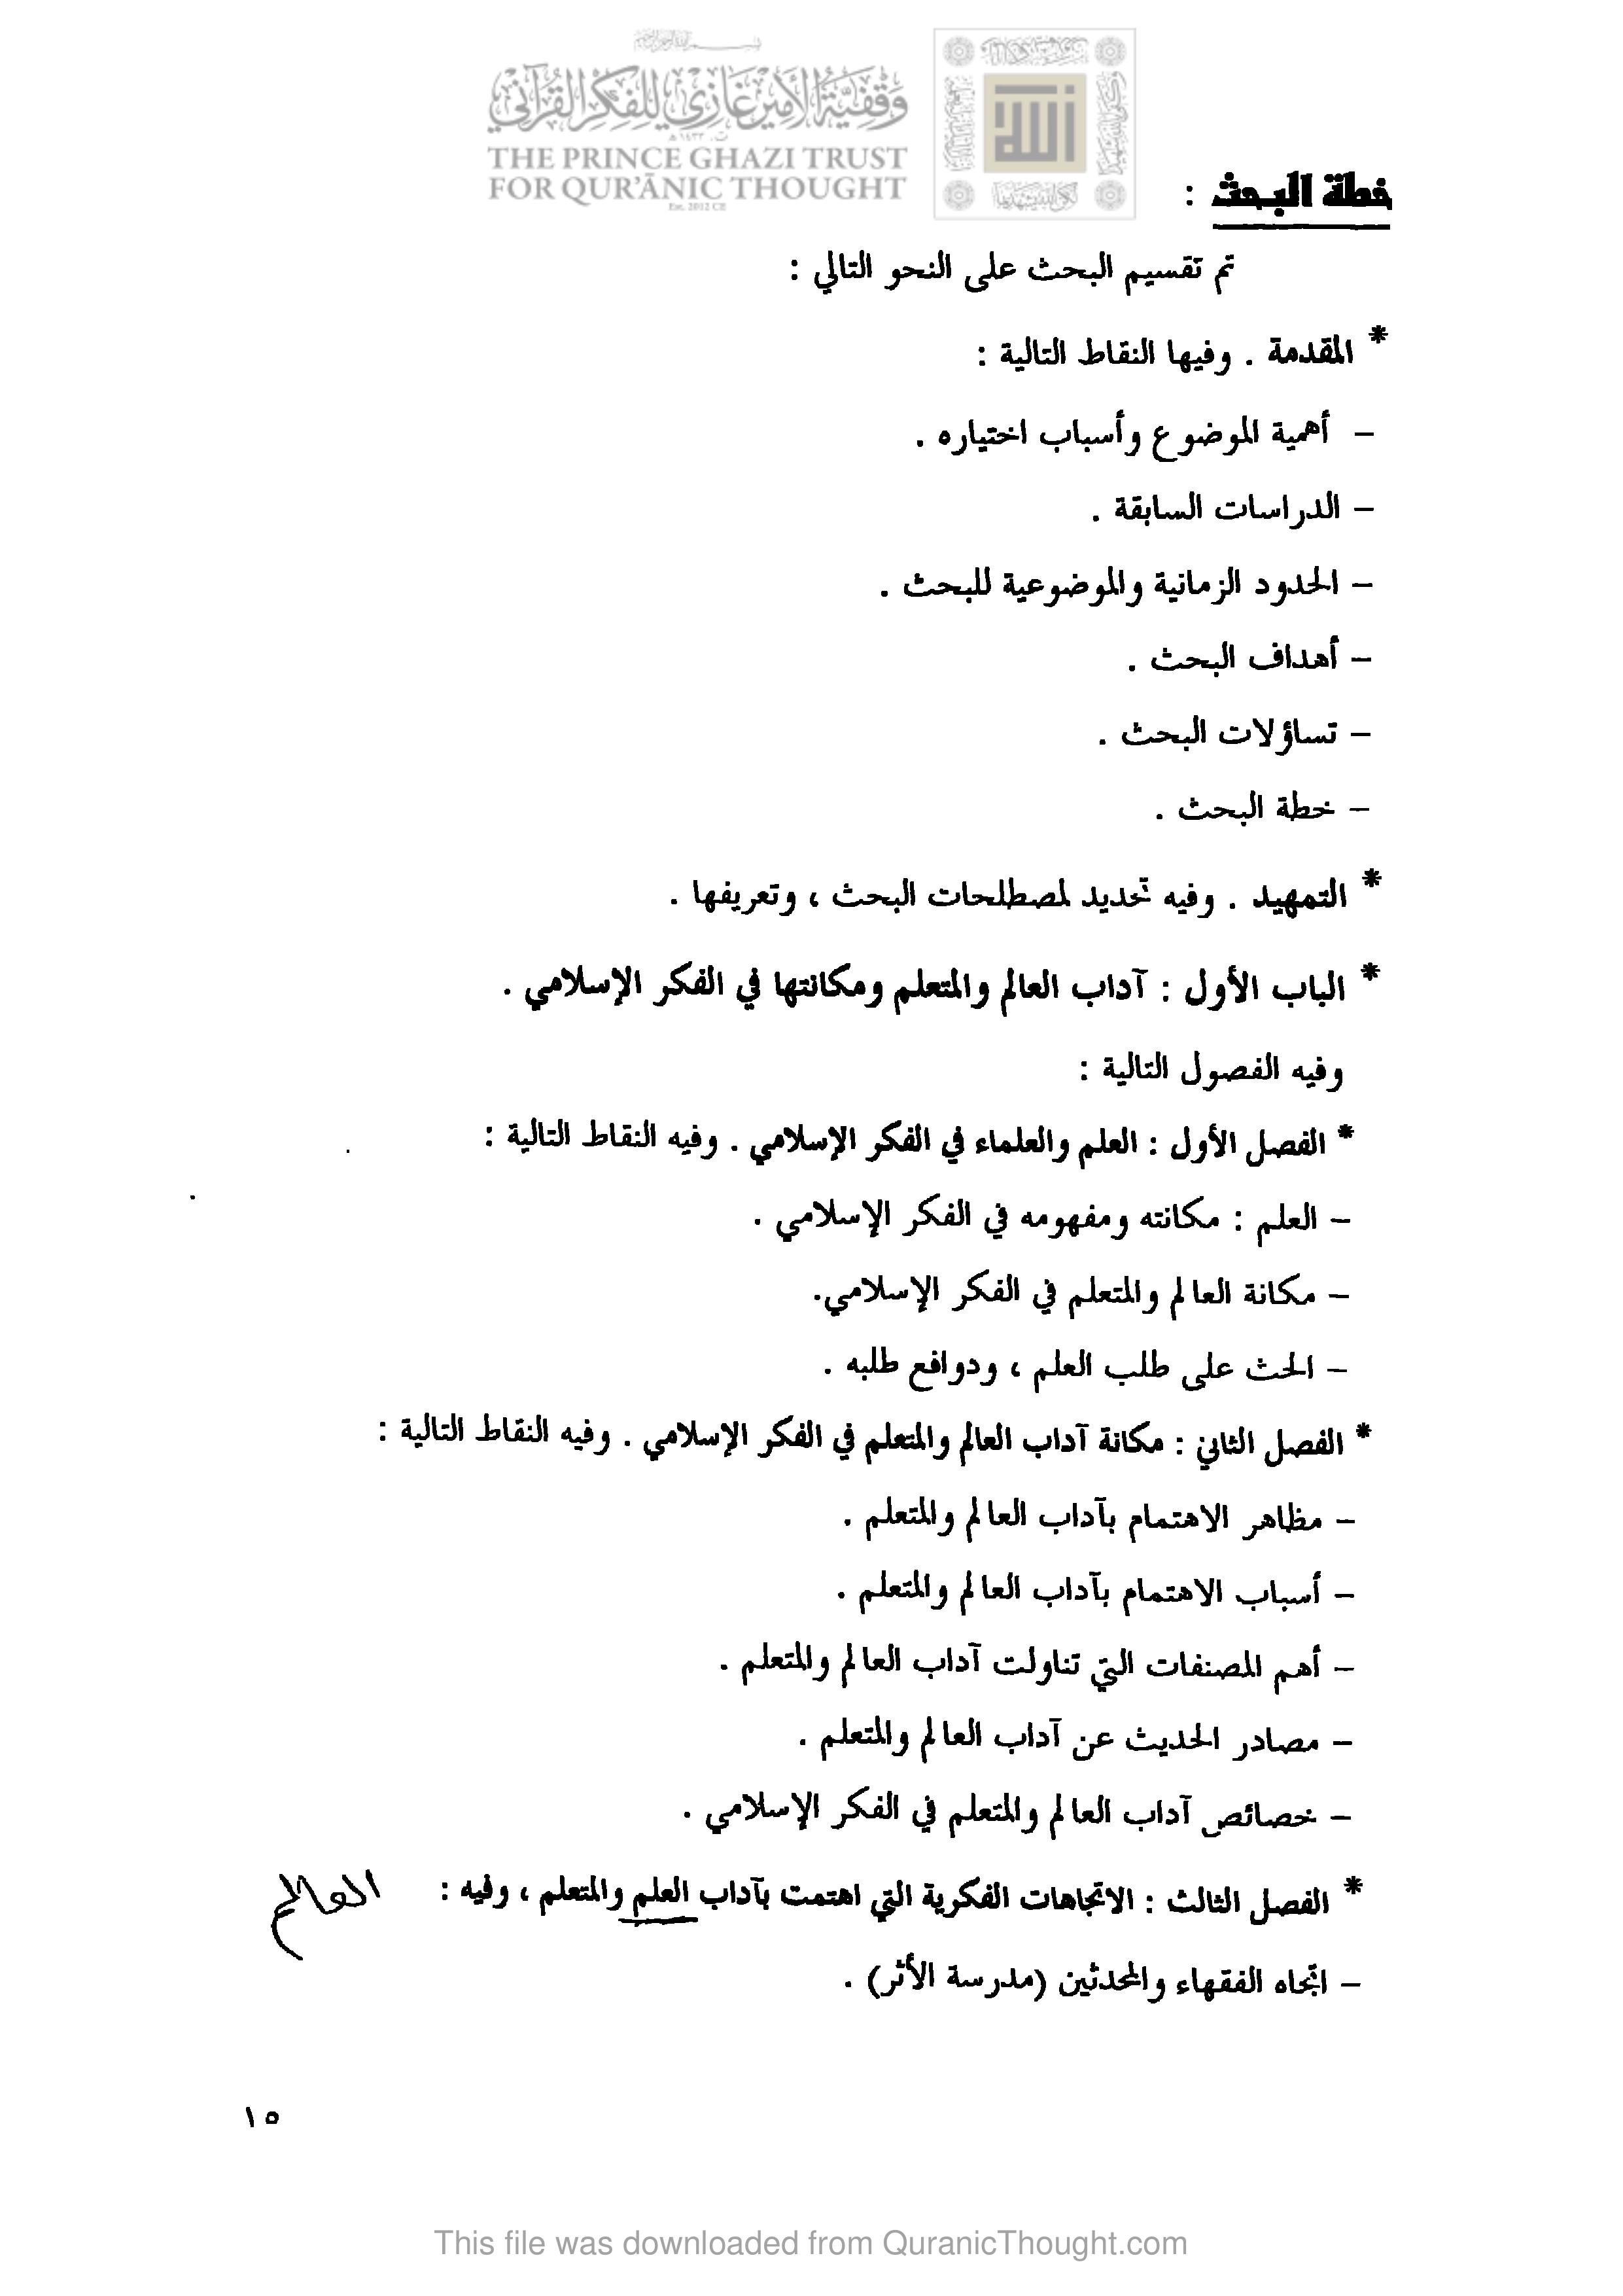 وقفية الأمير غازي للفكر القرآني
THE PRINCE GHAZI TRUST
FOR QUR'ĀNIC THOUGHT
Est. 2012 CE
الله
خطة البحث :
تم تقسيم البحث على النحو التالي :
* المقدمة . وفيها النقاط التالية :
– أهمية الموضوع وأسباب اختياره .
– الدراسات السابقة .
– الحدود الزمانية والموضوعية للبحث .
– أهداف البحث .
– تساؤلات البحث .
– خطة البحث .
* التمهيد . وفيه تحديد لمصطلحات البحث ، وتعريفها .
* الباب الأول : آداب العالم والمتعلم ومكانتها في الفكر الإسلامي .
وفيه الفصول التالية :
* الفصل الأول : العلم والعلماء في الفكر الإسلامي . وفيه النقاط التالية :
– العلم : مكانته ومفهومه في الفكر الإسلامي .
– مكانة العالم والمتعلم في الفكر الإسلامي.
– الحث على طلب العلم ، ودوافع طلبه .
* الفصل الثاني : مكانة آداب العالم والمتعلم في الفكر الإسلامي . وفيه النقاط التالية :
– مظاهر الاهتمام بآداب العالم والمتعلم .
– أسباب الاهتمام بآداب العالم والمتعلم .
– أهم المصنفات التي تناولت آداب العالم والمتعلم .
– مصادر الحديث عن آداب العالم والمتعلم .
– خصائص آداب العالم والمتعلم في الفكر الإسلامي .
* الفصل الثالث : الاتجاهات الفكرية التي اهتمت بآداب العلم والمتعلم ، وفيه :
العالم
– اتجاه الفقهاء والمحدثين (مدرسة الأثر) .
١٥
This file was downloaded from QuranicThought.com